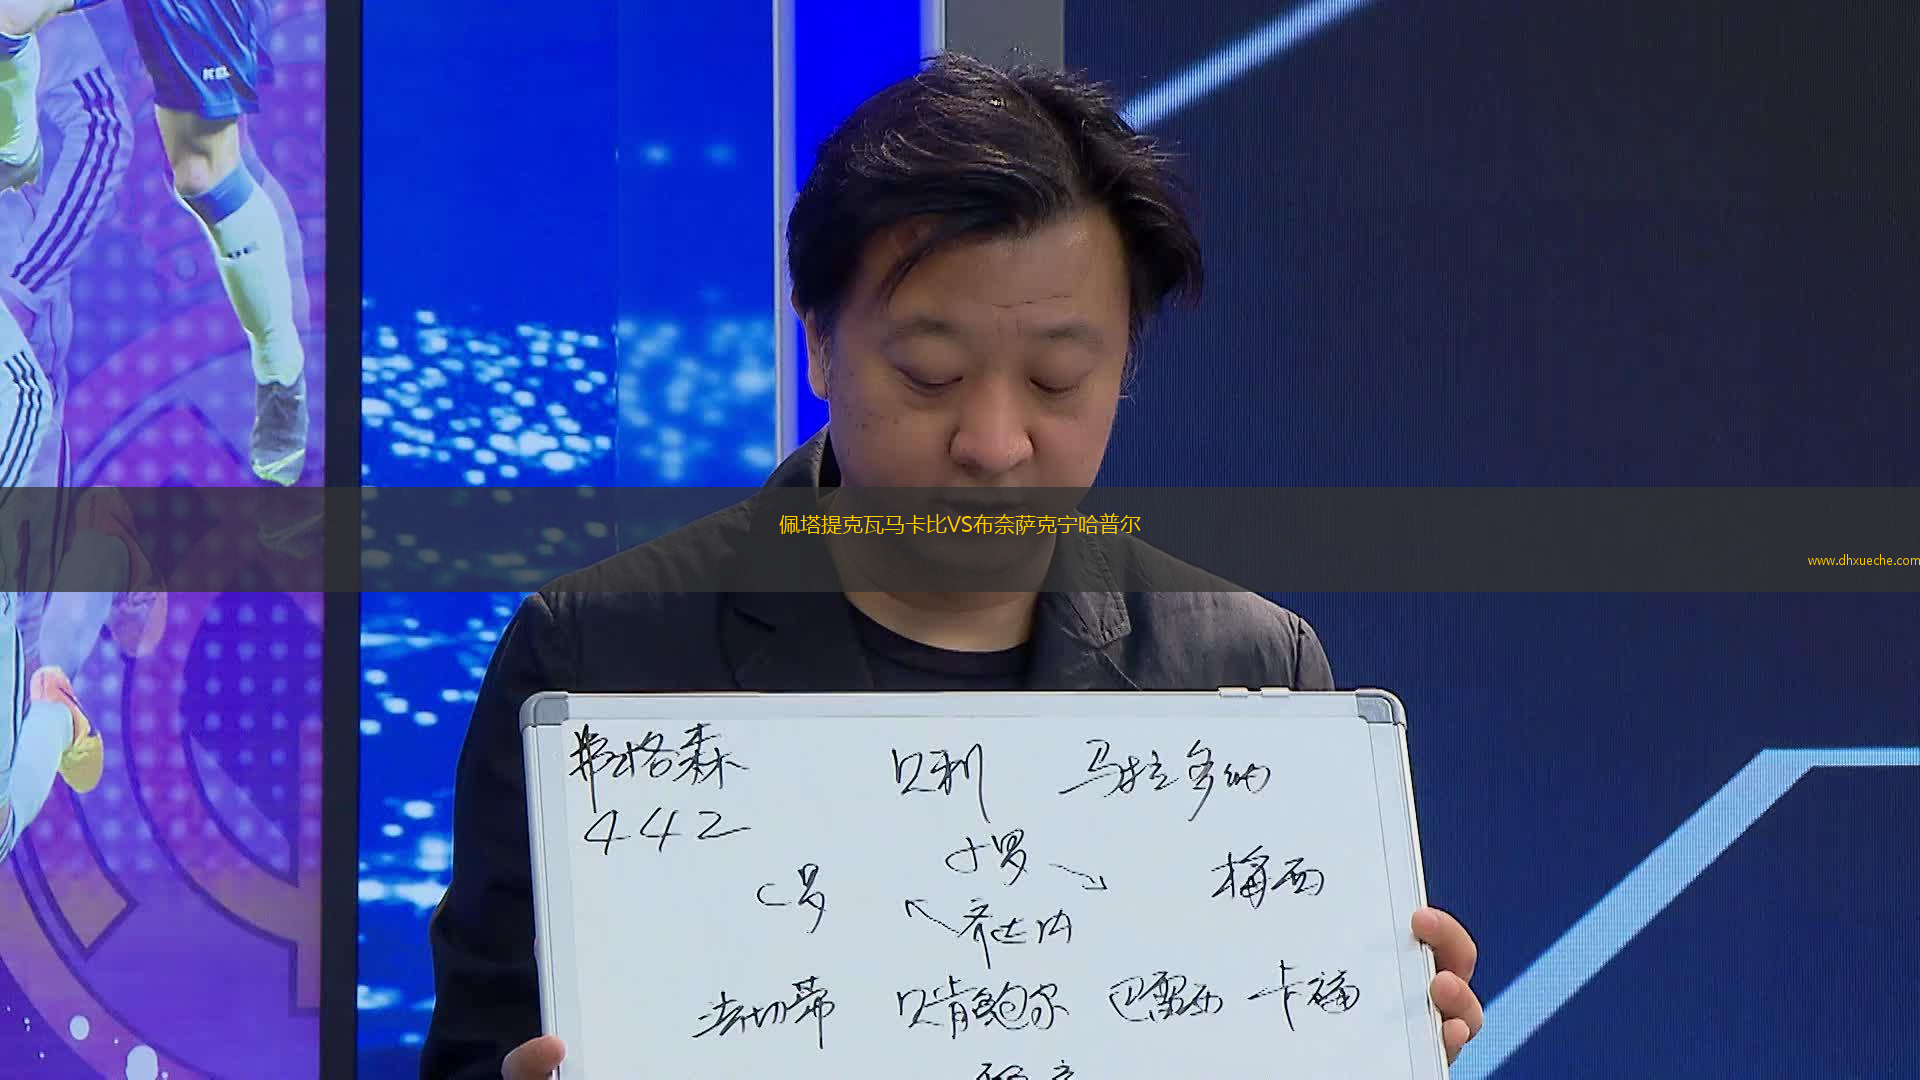 KG
佩塔提克瓦马卡比VS布奈萨克宁哈普尔
www.dhxueche.com
弗格森 贝利 马拉多纳
442
小罗
C罗 梅西
齐达内
法切蒂 贝肯鲍尔 巴雷西 卡福